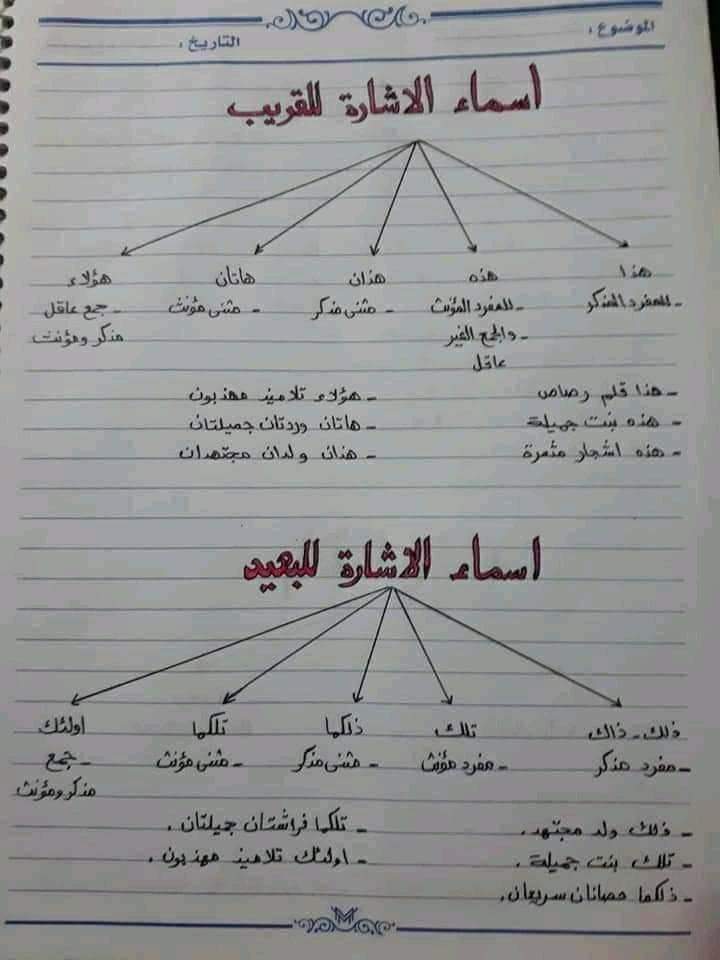 الموضوع :
التاريخ :
اسماء الاشارة للقريب
هذا هذه هذان هاتان هؤلاء
- للمفرد المذكر - للمفرد المؤنث - مثنى مذكر - مثنى مؤنث - جمع عاقل
- والجمع الغير مذكر ومؤنث
عاقل
- هذا قلم رصاص - هؤلاء تلاميذ مهذبون
- هذه بنت جميلة - هاتان وردتان جميلتان
- هذه اشجار مثمرة - هذان ولدان مجتهدان
اسماء الاشارة للبعيد
ذلك - ذاك تلك ذلكما تلكما اولئك
- مفرد مذكر - مفرد مؤنث - مثنى مذكر - مثنى مؤنث - جمع
مذكر ومؤنث
- ذلك ولد مجتهد. - تلكما فراشتان جميلتان.
- تلك بنت جميلة. - اولئك تلاميذ مهذبون.
- ذلكما حصانان سريعان.